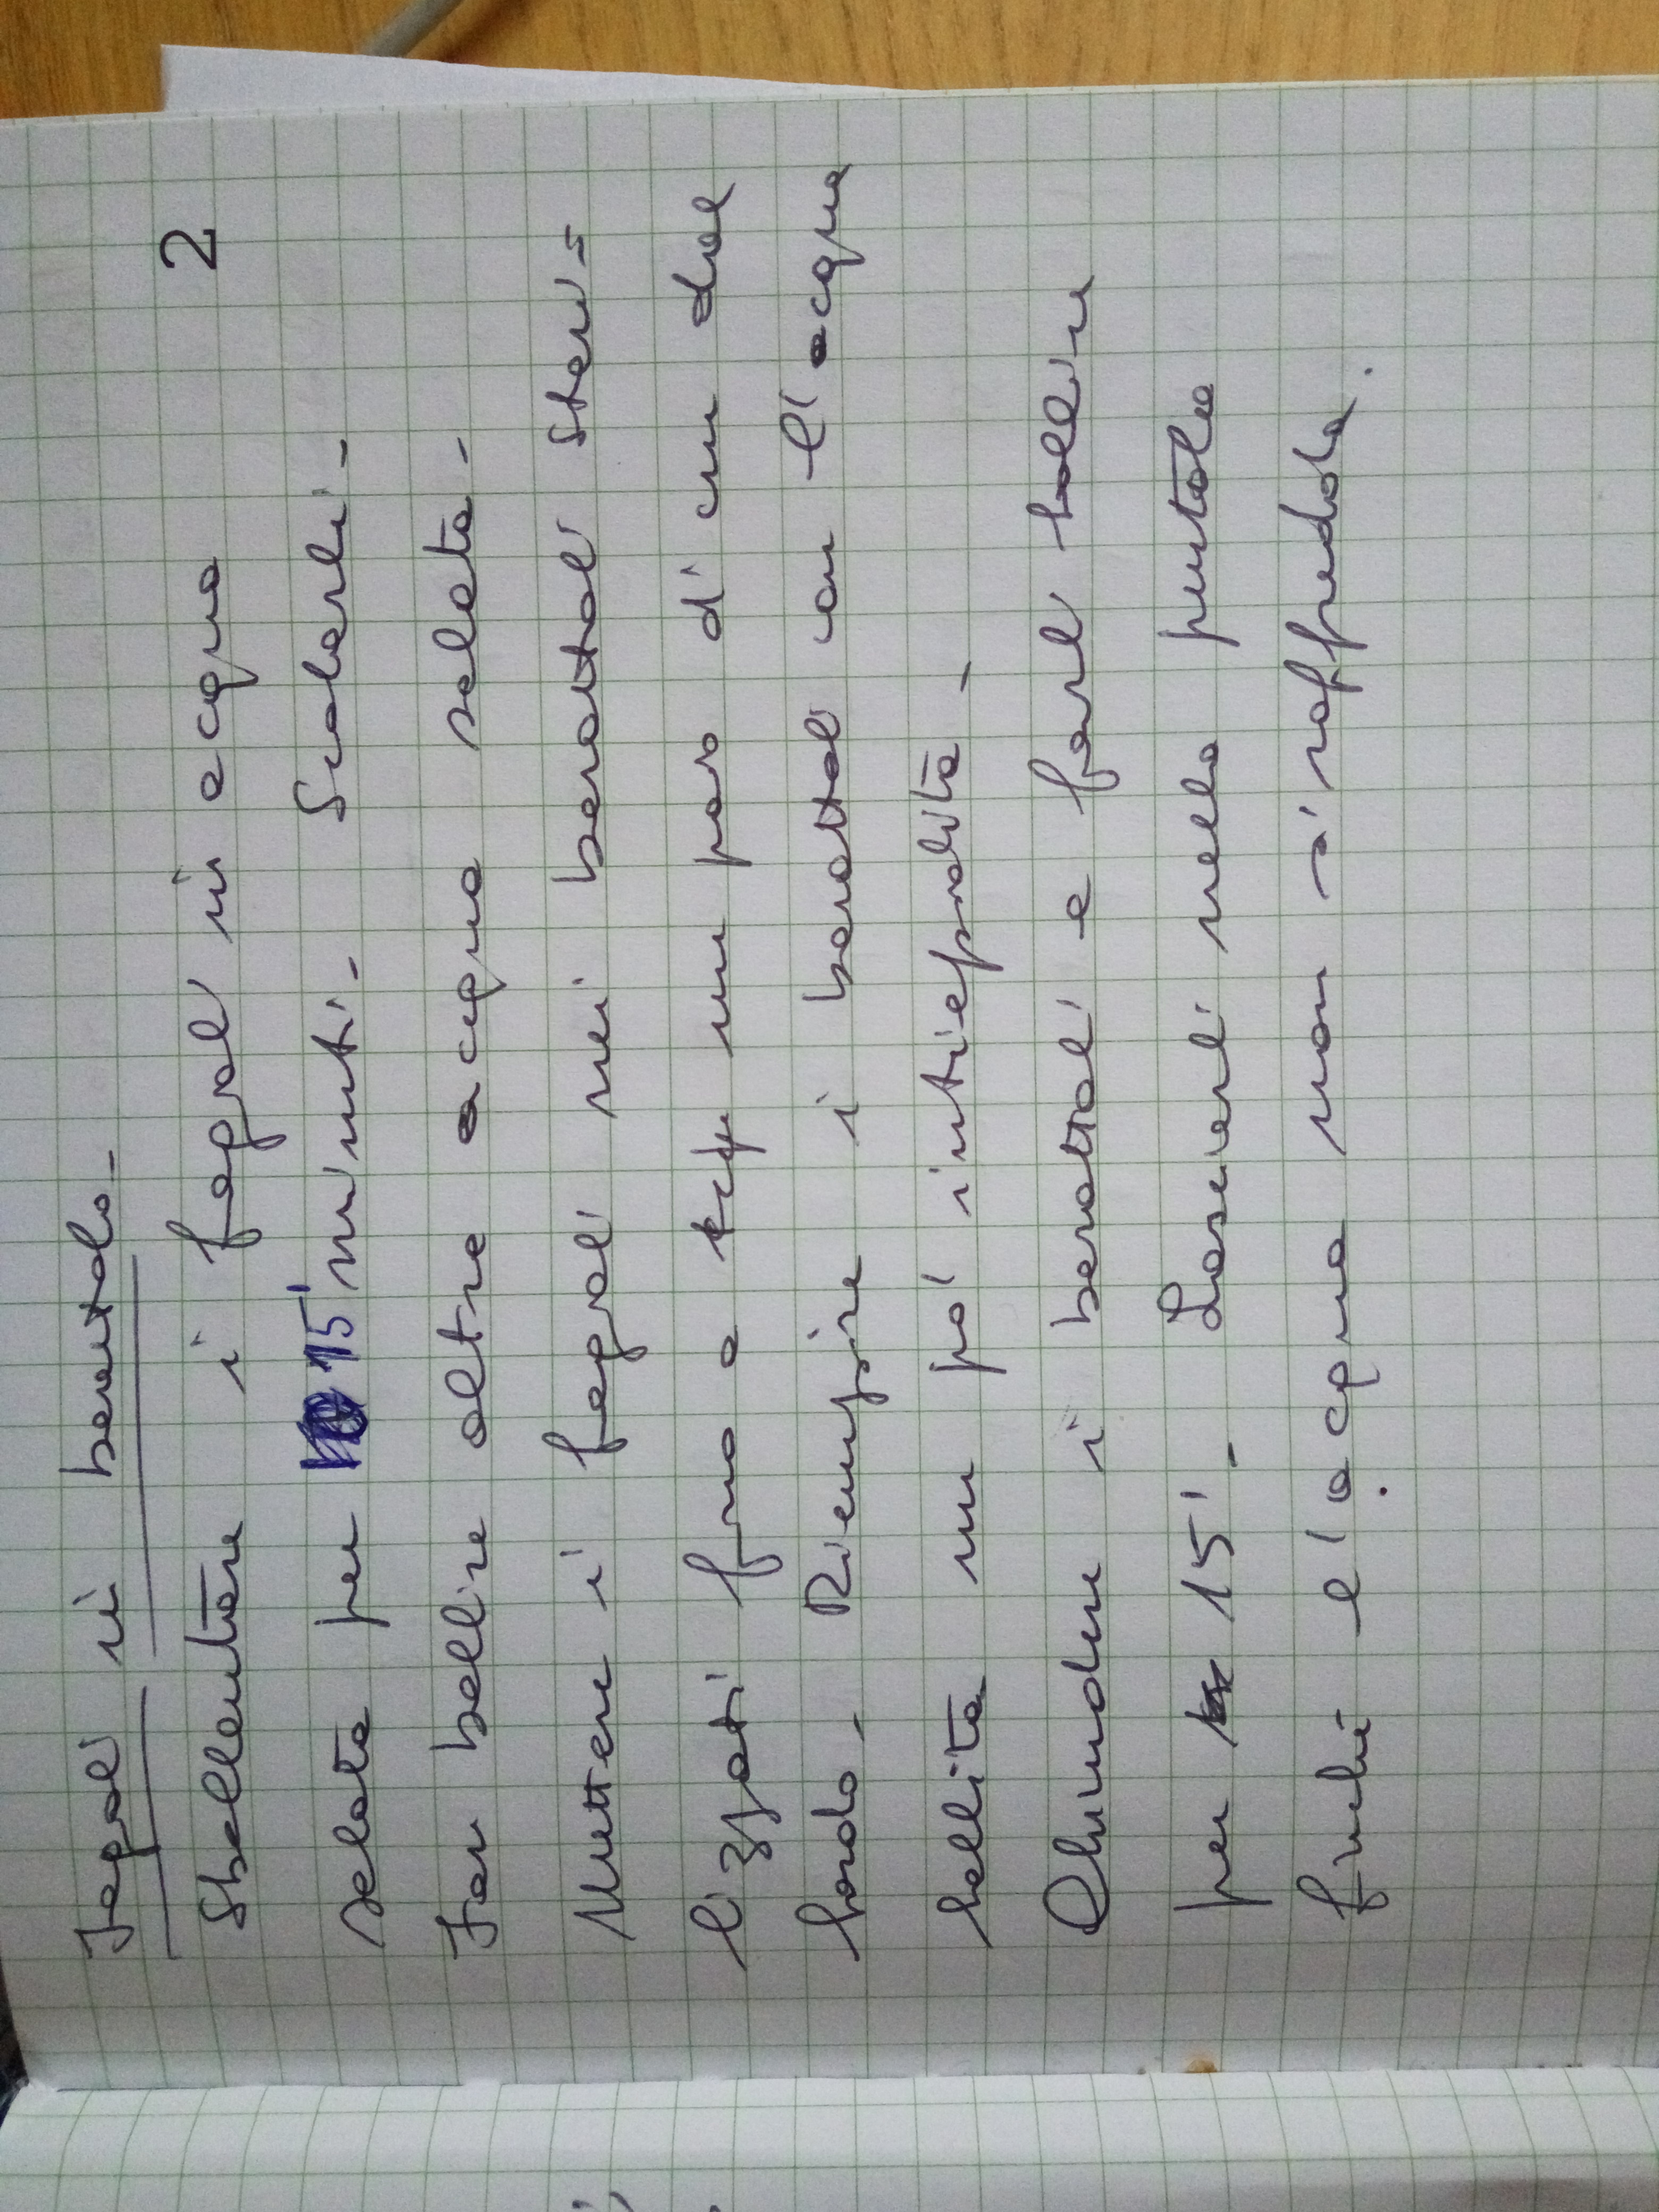 Fagioli in barattolo -
2
Sbollentare i fagioli in acqua
salata per 15' minuti - Scolarli -
Far bollire altra acqua salata -
Mettere i fagioli nei barattoli steri=
lizzati fino a un paio di cm dal
bordo - Riempire i barattoli con l'acqua
bollita un po' intiepidita -
Chiudere i barattoli e farli bollire
per 15' - Lasciarli nella pentola
finchè l'acqua non si raffredda.